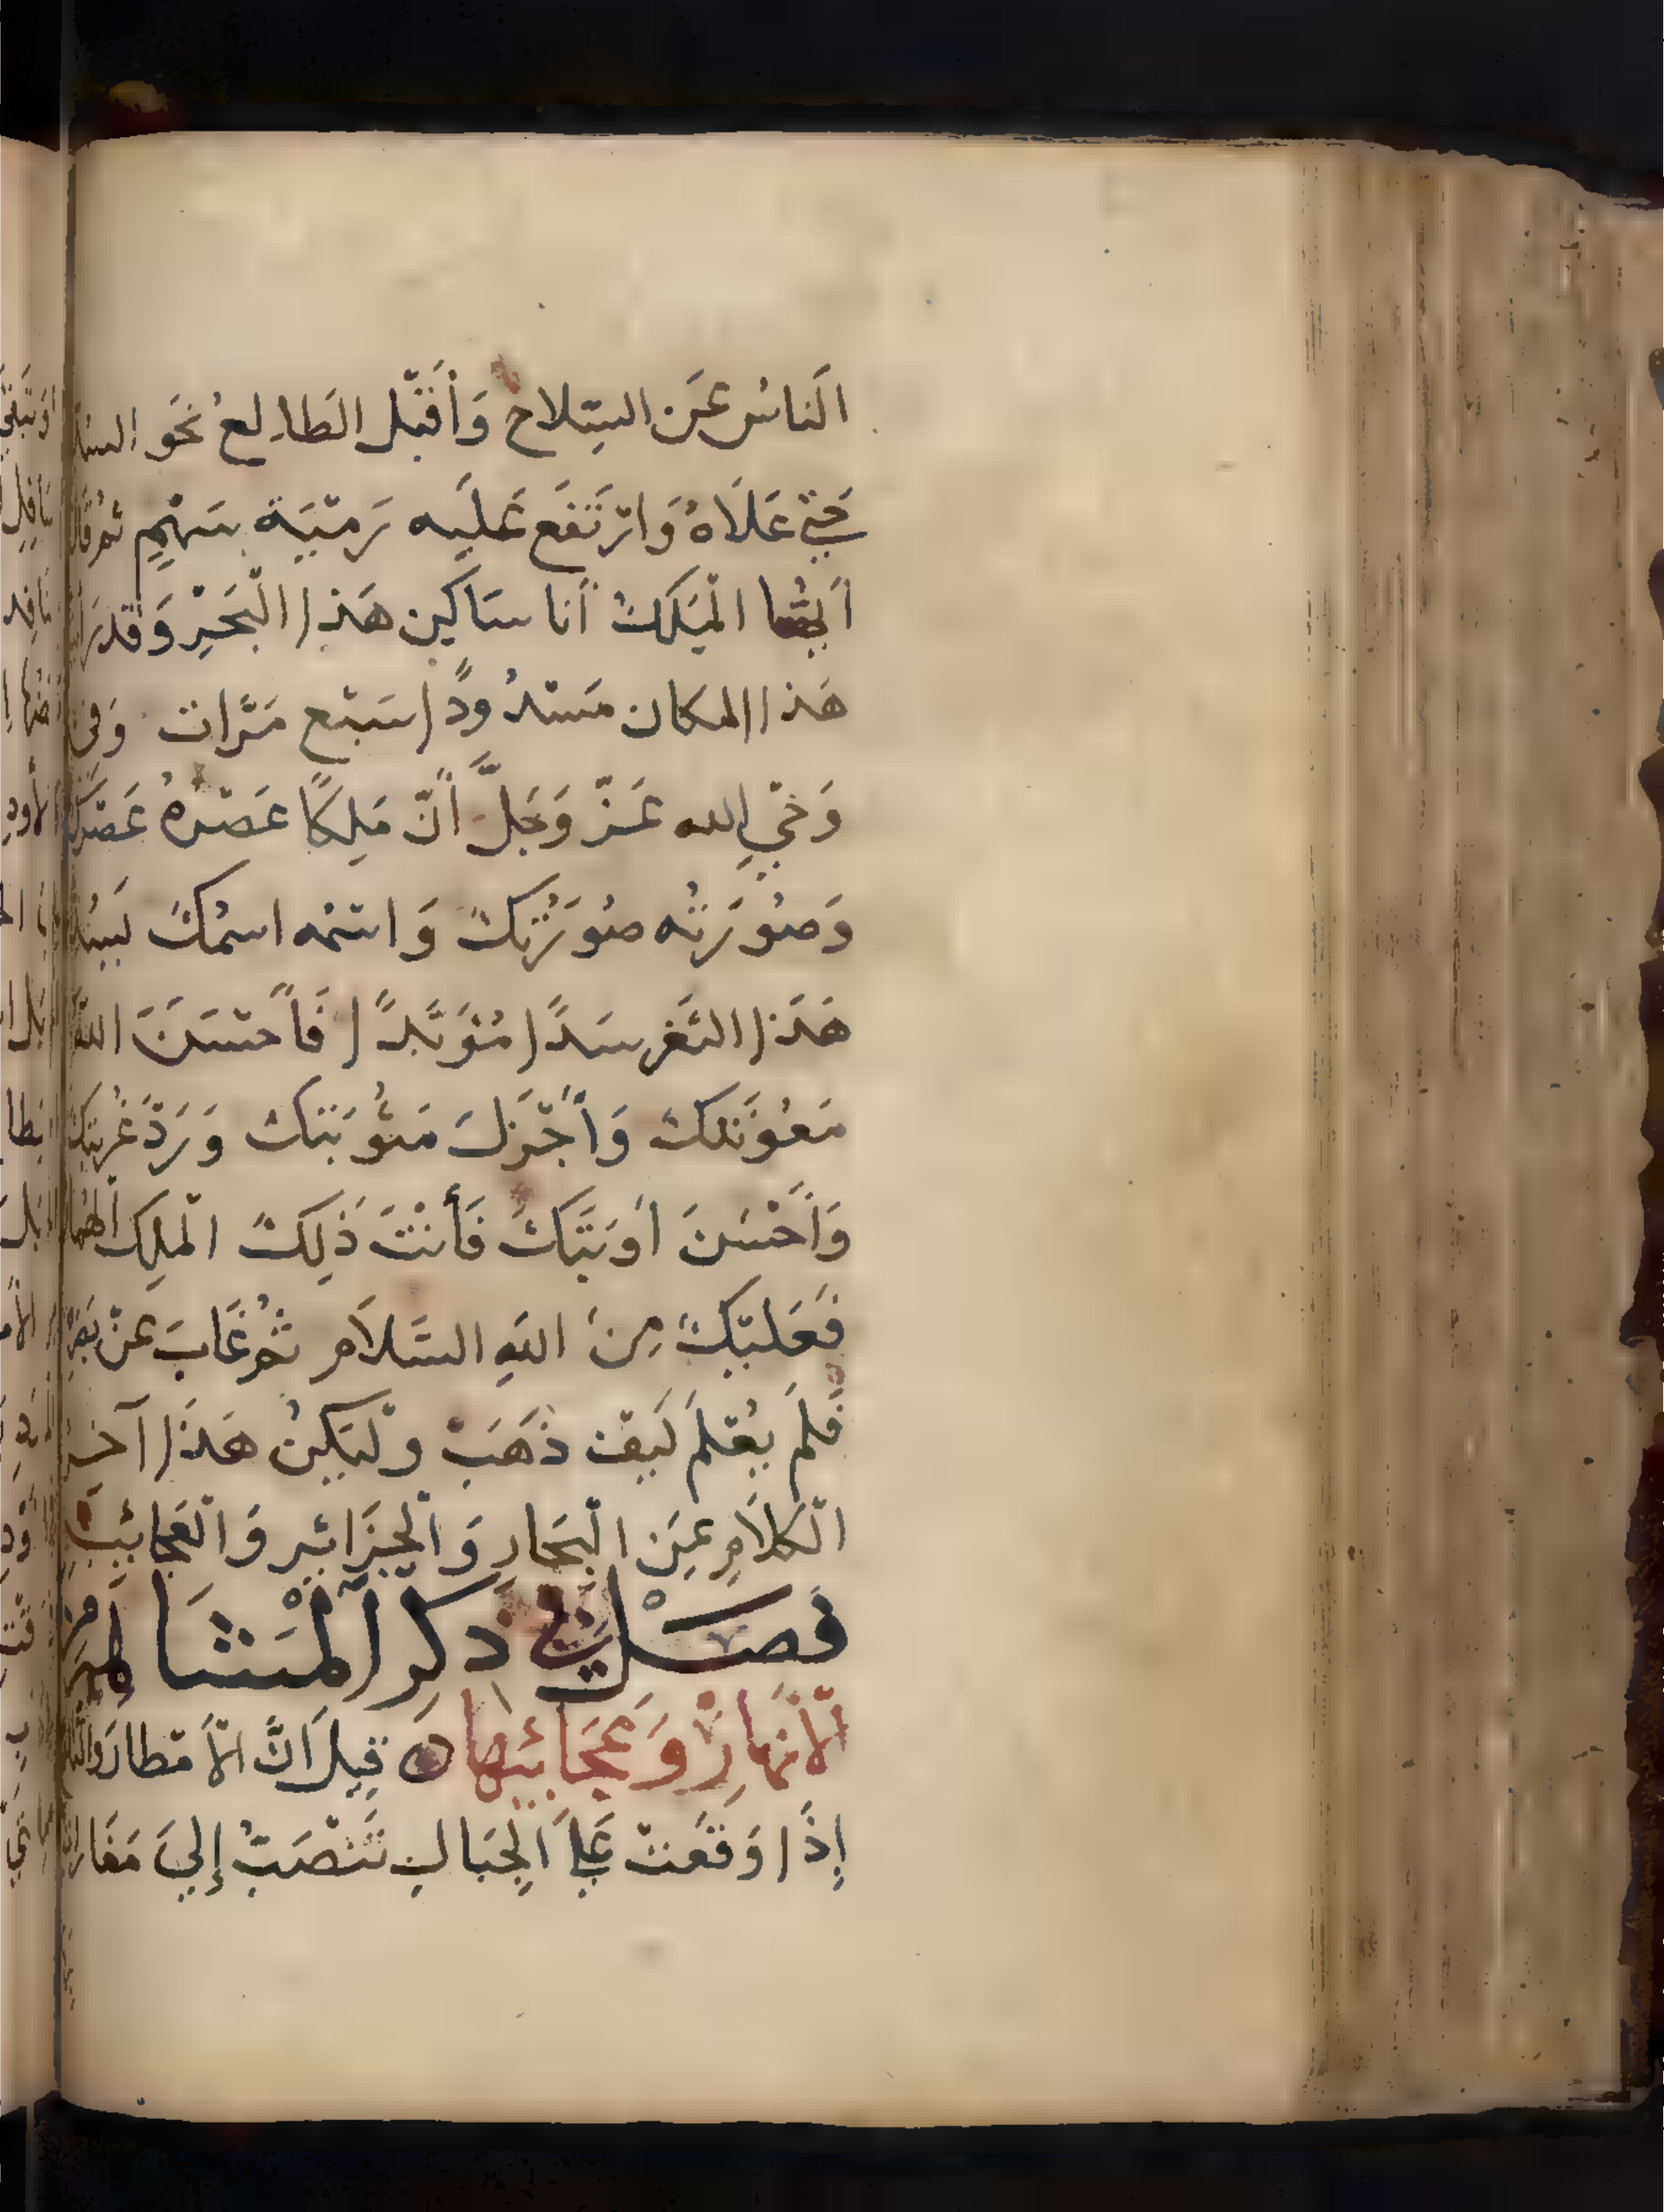 اَلنَاسُ عَن السِّلاح وَأَقْبَل الطَالِعُ نَحو السد
حَتّي عَلَاهُ وَارتَفَع عَليَه رَميَة بسَهْمٍ ثم قال
اَيُّها الْمَلكُ أنا سَاكِن هَذا الْبَحْرِ وَقد رَايت
هَذا المكان مَسْدُودًا سَبْع مَرَّات وَفي
وَحْيِ الله عَزّ وَجَلَّ أَنّ مَلِكًا عَصْرُهُ عَصْرَك
وَصُورَته صُورَتِكَ وَاسْمه اسمُكَ يَسُد
هَذَا الثَغر سَدًا مُؤَبَّدًا فَأَحْسَنَ اللهُ
مَعُونَتكَ وَأَجْزَلَ مَثُوبَتكَ وَرَدَّ غُربَتك
وَأَحْسَنَ أَوبَتَكَ فَأَنْتَ ذَلِكَ الْمَلِك الهُمام
فَعَلَيْكَ مِنَ اللهِ السَّلَام ثمُ غَابَ عَنْ بَصَرِه
فَلَم يُعْلَم كَيفَ ذَهَبَ وليَكنُ هَذَا آخرُ
الْكلَامِ عَن الْبِحَارِ وَالْجَزَائِر وَالْعَجَائِبِ
فَصـــل في ذكرِ الْمَشَاهِير مِن
الْأنهَارِ وَعَجَائِبَها ه قِيلَ اَنَّ الْأَمْطارَ وَالثلوج
إِذَا وَقَعَتْ عَلَي الْجِبَالِ تَنْصَبُّ إِليَ مَغَارات